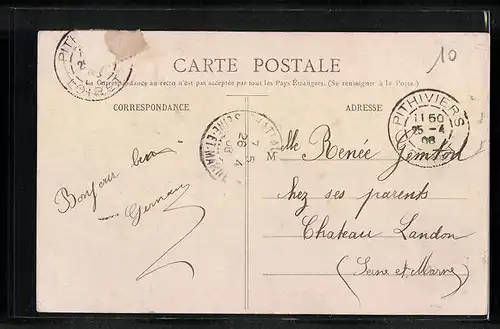 10
CARTE POSTALE
La Correspondance au recto n'est pas acceptée par tous les Pays Étrangers. (Se renseigner à la Poste.)
CORRESPONDANCE
ADRESSE
PITHIVIERS
11 50
25 - 4
08
LOIRET
7 5
26 4
08
SEINE-ET-MARNE
Bonjour
Germain
Melle Renée
chez ses parents
Chateau Landon
(Seine et Marne)